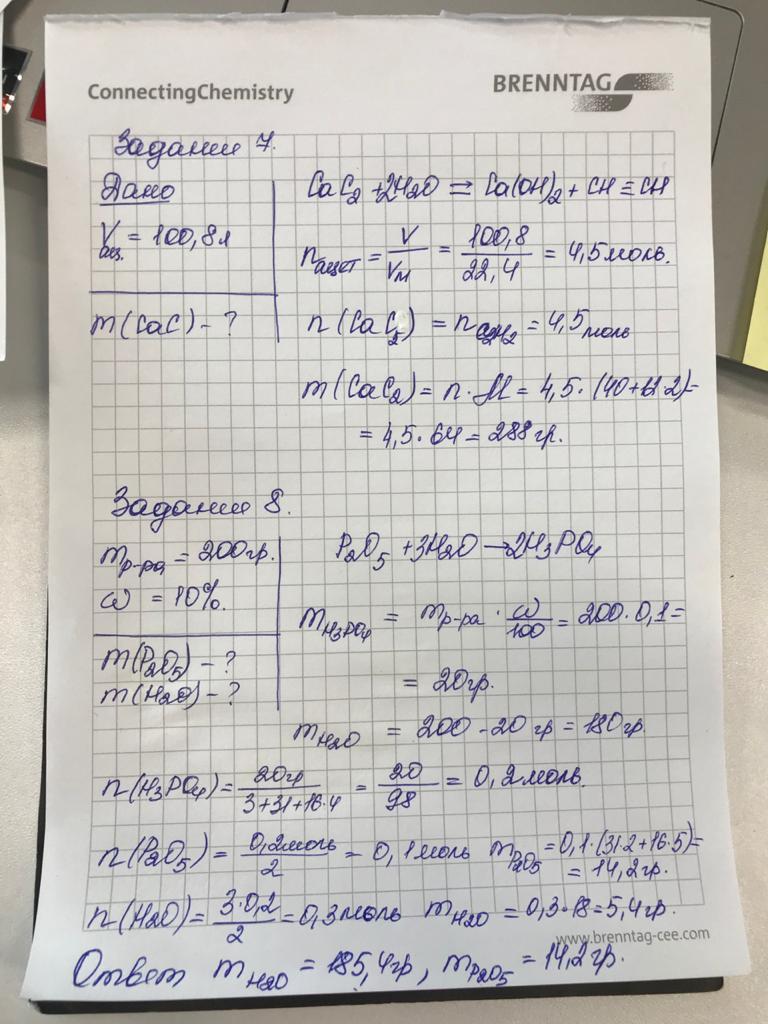 ConnectingChemistry
BRENNTAG
Задание 7.
Дано
V ац. = 100,8 л
m(CaC) - ?
CaC₂ + 2H₂O = Ca(OH)₂ + CH ≡ CH
n ацет = V/Vм = 100,8/22,4 = 4,5 моль.
n(CaC₂) = n C₂H₂ = 4,5 моль
m(CaC₂) = n · M = 4,5 · (40+12·2) =
= 4,5 · 64 = 288 гр.
Задание 8.
m р-ра = 200 гр.
ω = 10%.
m(P₂O₅) - ?
m(H₂O) - ?
P₂O₅ + 3H₂O → 2H₃PO₄
m H₃PO₄ = m р-ра · ω/100 = 200 · 0,1 =
= 20 гр.
m H₂O = 200 - 20 гр = 180 гр.
n(H₃PO₄) = 20 гр/3+31+16·4 = 20/98 = 0,2 моль.
n(P₂O₅) = 0,2 моль/2 = 0,1 моль m P₂O₅ = 0,1·(31·2+16·5) =
= 14,2 гр.
n(H₂O) = 3·0,2/2 = 0,3 моль m H₂O = 0,3·18 = 5,4 гр.
www.brenntag-cee.com
Ответ m H₂O = 185,4 гр, m P₂O₅ = 14,2 гр.